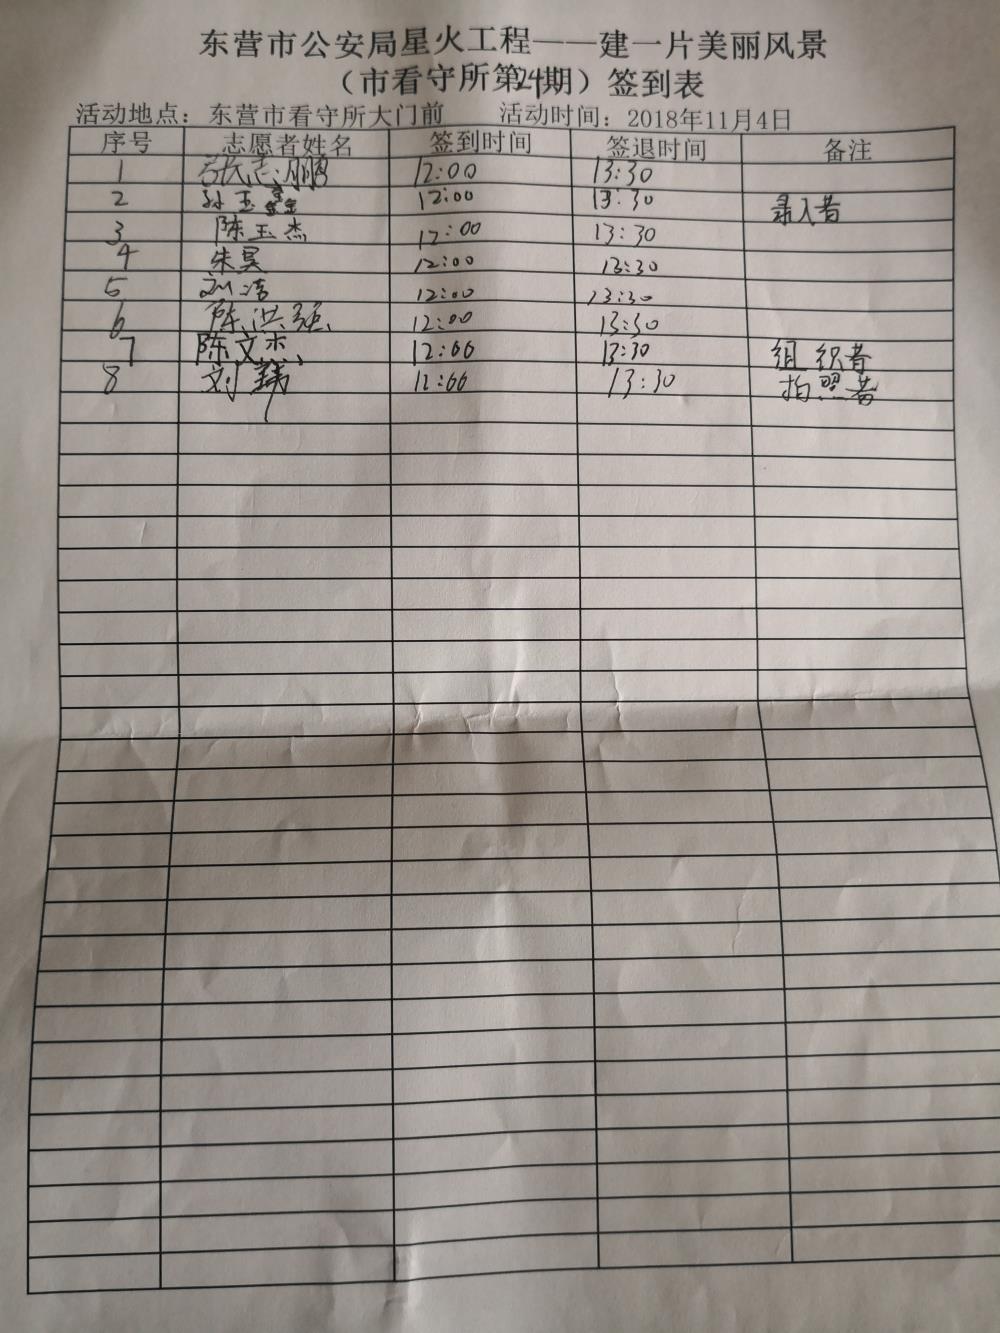 东营市公安局星火工程——建一片美丽风景
（市看守所第24期）签到表
活动地点：东营市看守所大门前 活动时间：2018年11月4日
序号 志愿者姓名 签到时间 签退时间 备注
1 张志鹏 12:00 13:30
2 孙玉 12:00 13:30 录入者
3 陈玉杰 12:00 13:30
4 朱昊 12:00 13:30
5 刘洁 12:00 13:30
6 陈洪强 12:00 13:30
7 陈文杰 12:00 13:30 组织者
8 刘 12:00 13:30 拍照者